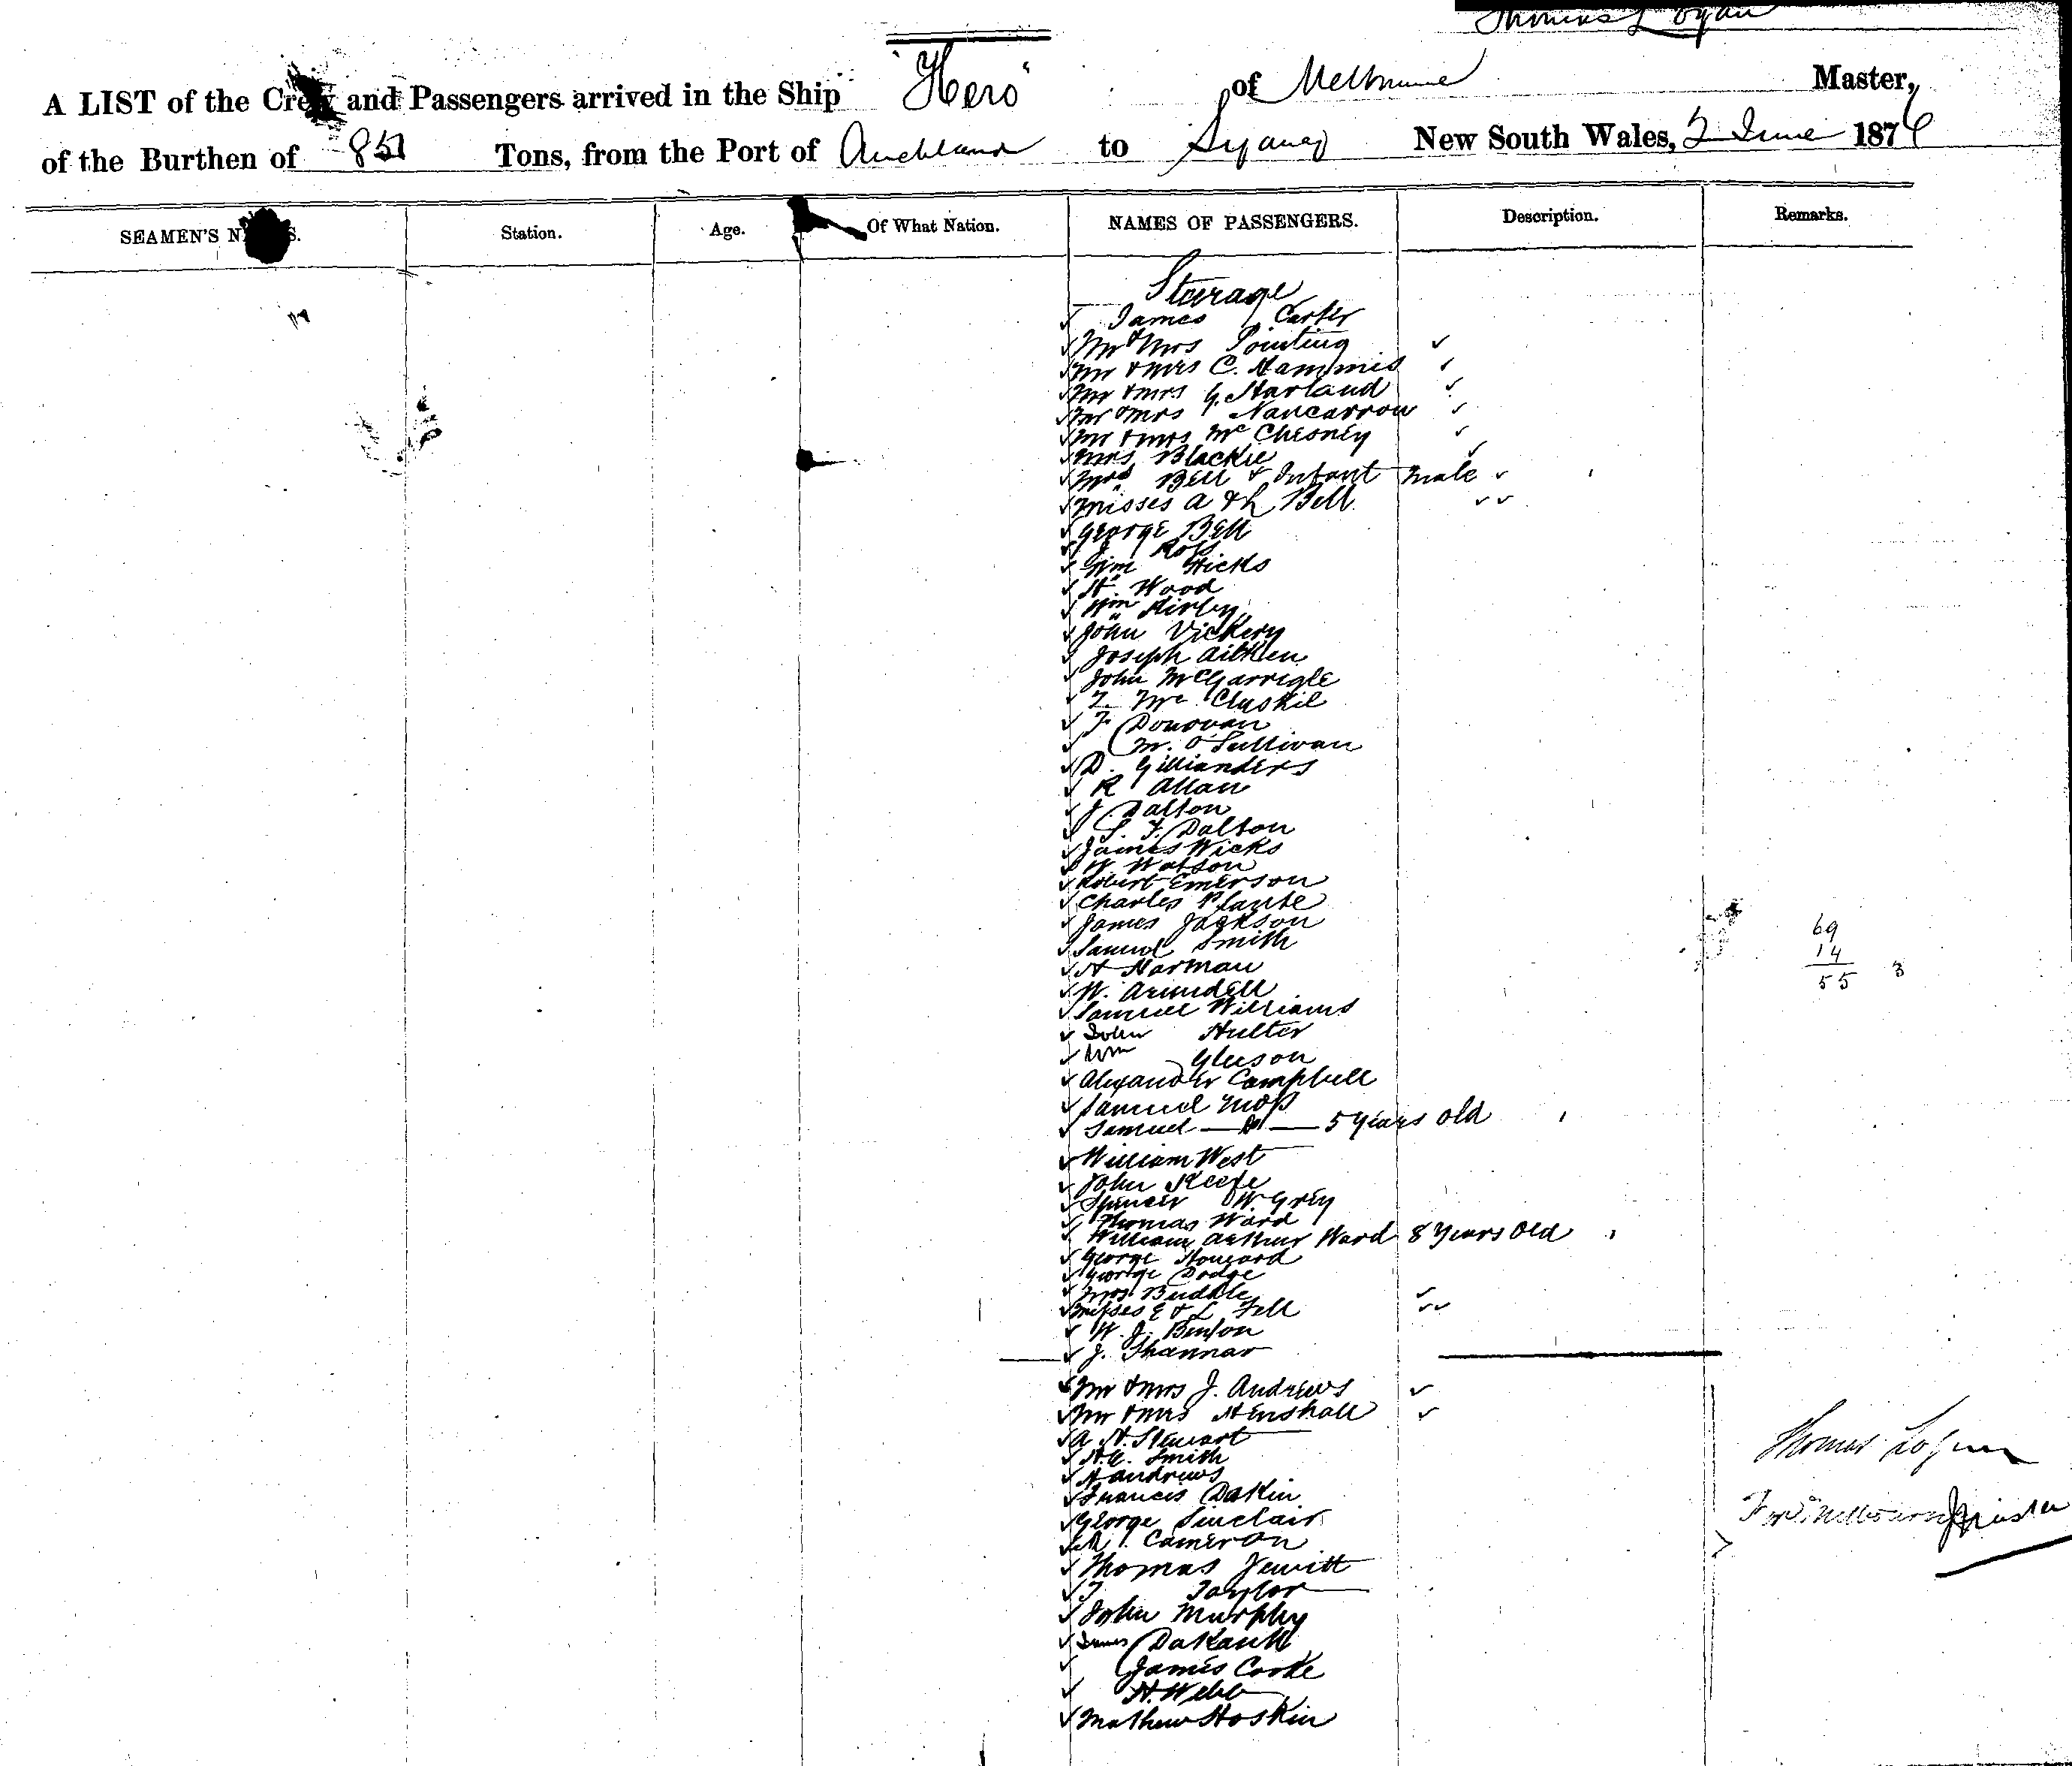 Thomas Logan
A LIST of the Crew and Passengers arrived in the Ship "Hero" of Melbourne Master,
of the Burthen of 851 Tons, from the Port of Auckland to Sydney New South Wales, 2 June 1876
SEAMEN'S NAMES. Station. Age. Of What Nation. NAMES OF PASSENGERS. Description. Remarks.
Steerage
James Carter
Mr & Mrs Pointing
Mr & Mrs C. Hammis
Mr & Mrs G. Harland
Mr & Mrs Nancarrow
Mr & Mrs McChesney
Mrs Blackie
Mrs Bell & Infant Male
Misses A & L Bell
George Bell
J Ross
Wm Hicks
H. Wood
Wm Kirby
John Vickery
Joseph Aitken
John McGarrigle
T. McCluskie
F Donovan
M. O'Sullivan
D. Gillianders
R Allan
J. Dalton
S. F. Dalton
James Wicks
W Watson
Robert Emerson
Charles Plante
James Jackson
Samuel Smith
H Harman
W. Arundell
Samuel Williams
John Hulter
Wm Gleeson
Alexander Campbell
Samuel Moss
Samuel — Do — 5 years old
William West
John Keefe
Spencer W Grey
Thomas Ward
William Arthur Ward 8 years old
George Howard
George Dodge
Mrs Buddle
Misses E & L Fell
W. J. Benson
J. Thannar
Mr & Mrs J. Andrews
Mr & Mrs Henshall
A H. Stewart
H. E. Smith
H Andrews
Francis Dakin
George Sinclair
A. Cameron
Thomas Jewitt
T Taylor
John Murphy
James
James Cooke
H. Webb
Mathew Hoskin
69
14
55 3
Thomas Logan
For Melbourne